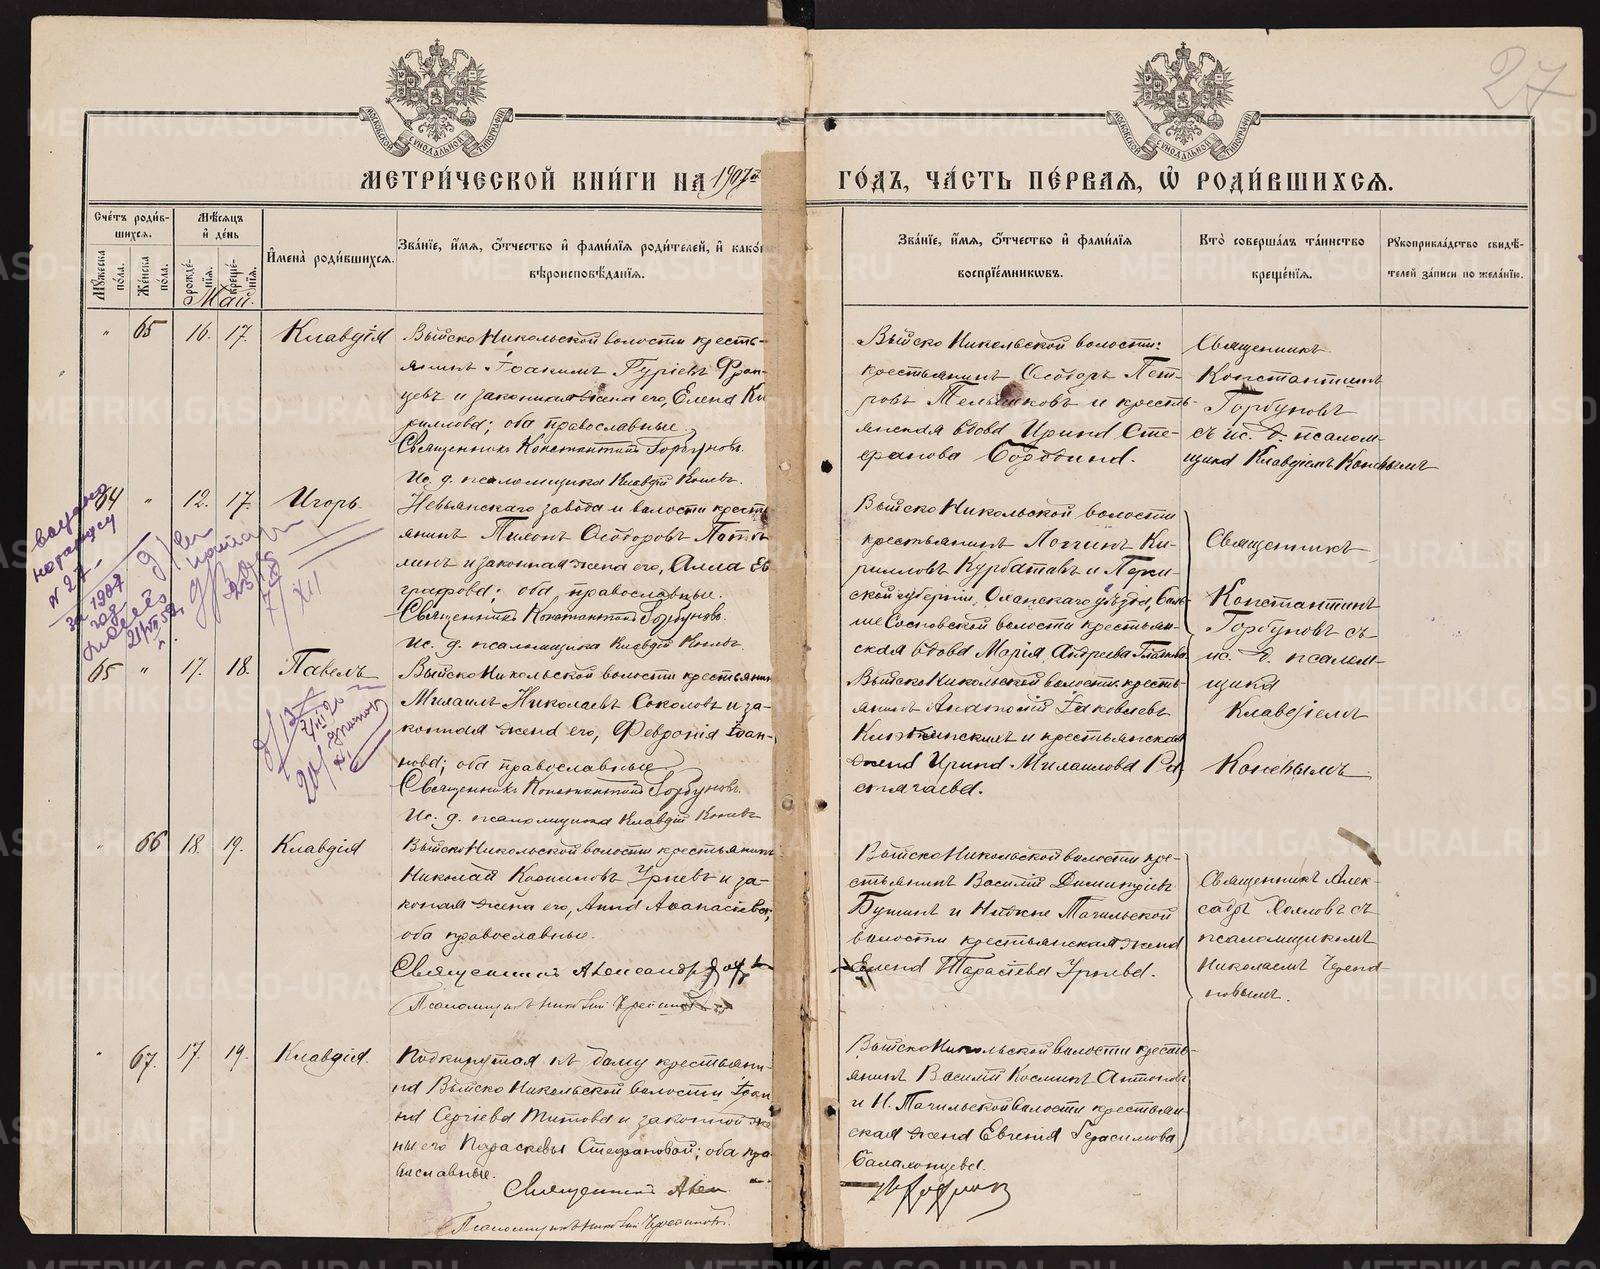 27
МОСКОВСКОЙ СѴНОДАЛЬНОЙ ТИПОГРАФІИ
МОСКОВСКОЙ СѴНОДАЛЬНОЙ ТИПОГРАФІИ
МЕТРИ́ЧЕСКОЙ КНИ́ГИ НА 1907й
ГО́ДЪ, ЧА́СТЬ ПЕ́РВАЯ, Ѡ҆ РОДИ́ВШИХСЯ.
Сче́тъ роди́в-
шихся.
Мꙋжеска по́ла.
Же́нска по́ла.
Мѣ́сяцъ
и҆ де́нь
рожде́-
нїя.
креще́-
нїя.
И҆мена̀ роди́вшихся.
Зва́нїе, и҆́мя, ѻ҆́тчество и҆ фами́лїя роди́телей, и҆ како́гѡ
вѣроисповѣ́данїя.
Зва́нїе, и҆́мя, ѻ҆́тчество и҆ фами́лїя
воспрїе́мникѡвъ.
Кто̀ соверша́лъ та́инство
креще́нїя.
Рꙋкоприкла́дство свидѣ́-
телей за́писи по жела́нїю.
Май.
" 65 16. 17. Клавдія
Выйско Никольской волости кресть-
янинъ Іоакимъ Гуріевъ Фран-
цевъ и законная жена его, Елена Ки
риллова; оба православные.
Священникъ Константинъ Горбуновъ.
Ис. д. псаломщика Клавдій Коневъ.
Выйско Никольской волости:
крестьянинъ Ѳеодоръ Пет-
ровъ и кресть-
янская вдова Ирина Сте-
фанова
Священникъ
Константинъ
Горбуновъ
съ ис. д. псалом-
щика Клавдіемъ Коневымъ
64 " 12. 17. Игорь
Невьянскаго завода и волости кресть
янинъ Ѳеодоровъ
и законная жена его, Алла Ев
графова; оба православные.
Священникъ Константинъ Горбуновъ.
Ис. д. псаломщика Клавдій Коневъ.
Выйско Никольской волости
крестьянинъ Логгинъ Ки-
рилловъ Курбатовъ и Перм-
ской губерніи, Оханскаго уѣзда,
Сосновской волости крестьян-
ская вдова Марія Андреева
Священникъ
Константинъ
Горбуновъ съ
ис. д. псалом-
щика
Клавдіемъ
Коневымъ
выдано
N 27
за 1907
год
65 " 17. 18. Павелъ
Выйско Никольской волости крестьянинъ
Михаилъ Николаевъ Соколовъ и за-
конная жена его, Февронія Іоан-
нова; оба православные
Священникъ Константинъ Горбуновъ.
Ис. д. псаломщика Клавдій Коневъ
Выйско Никольской волости кресть-
янинъ Анатолій Іаковлевъ
и крестьянская
жена Ирина Михаилова Ра
стягаева.
" 66 18. 19. Клавдія
Выйско Никольской волости крестьянинъ
Николай и за-
конная жена его, Анна Аѳанасіева,
оба православные.
Священникъ Александръ
Выйско Никольской волости кре-
стьянинъ Василій Димитріевъ
Бушинъ и Нижне Тагильской
волости крестьянская жена
Елена Тарасіева
Священникъ Алек-
сандръ съ
псаломщикомъ
Николаемъ
" 67. 17. 19. Клавдія.
Подкинутая къ дому крестьяни-
на Выйско Никольской волости Іоан
на Сергіева Титова и законной же
ны его Параскевы Стефановой; оба пра
вославные.
Священникъ
Выйско Никольской волости кресть-
янинъ Василій Косминъ Антоновъ
и Н. Тагильской волости крестьян-
ская жена Евгенія Герасимова
Балахонцева.
METRIKI.GASO-URAL.RU